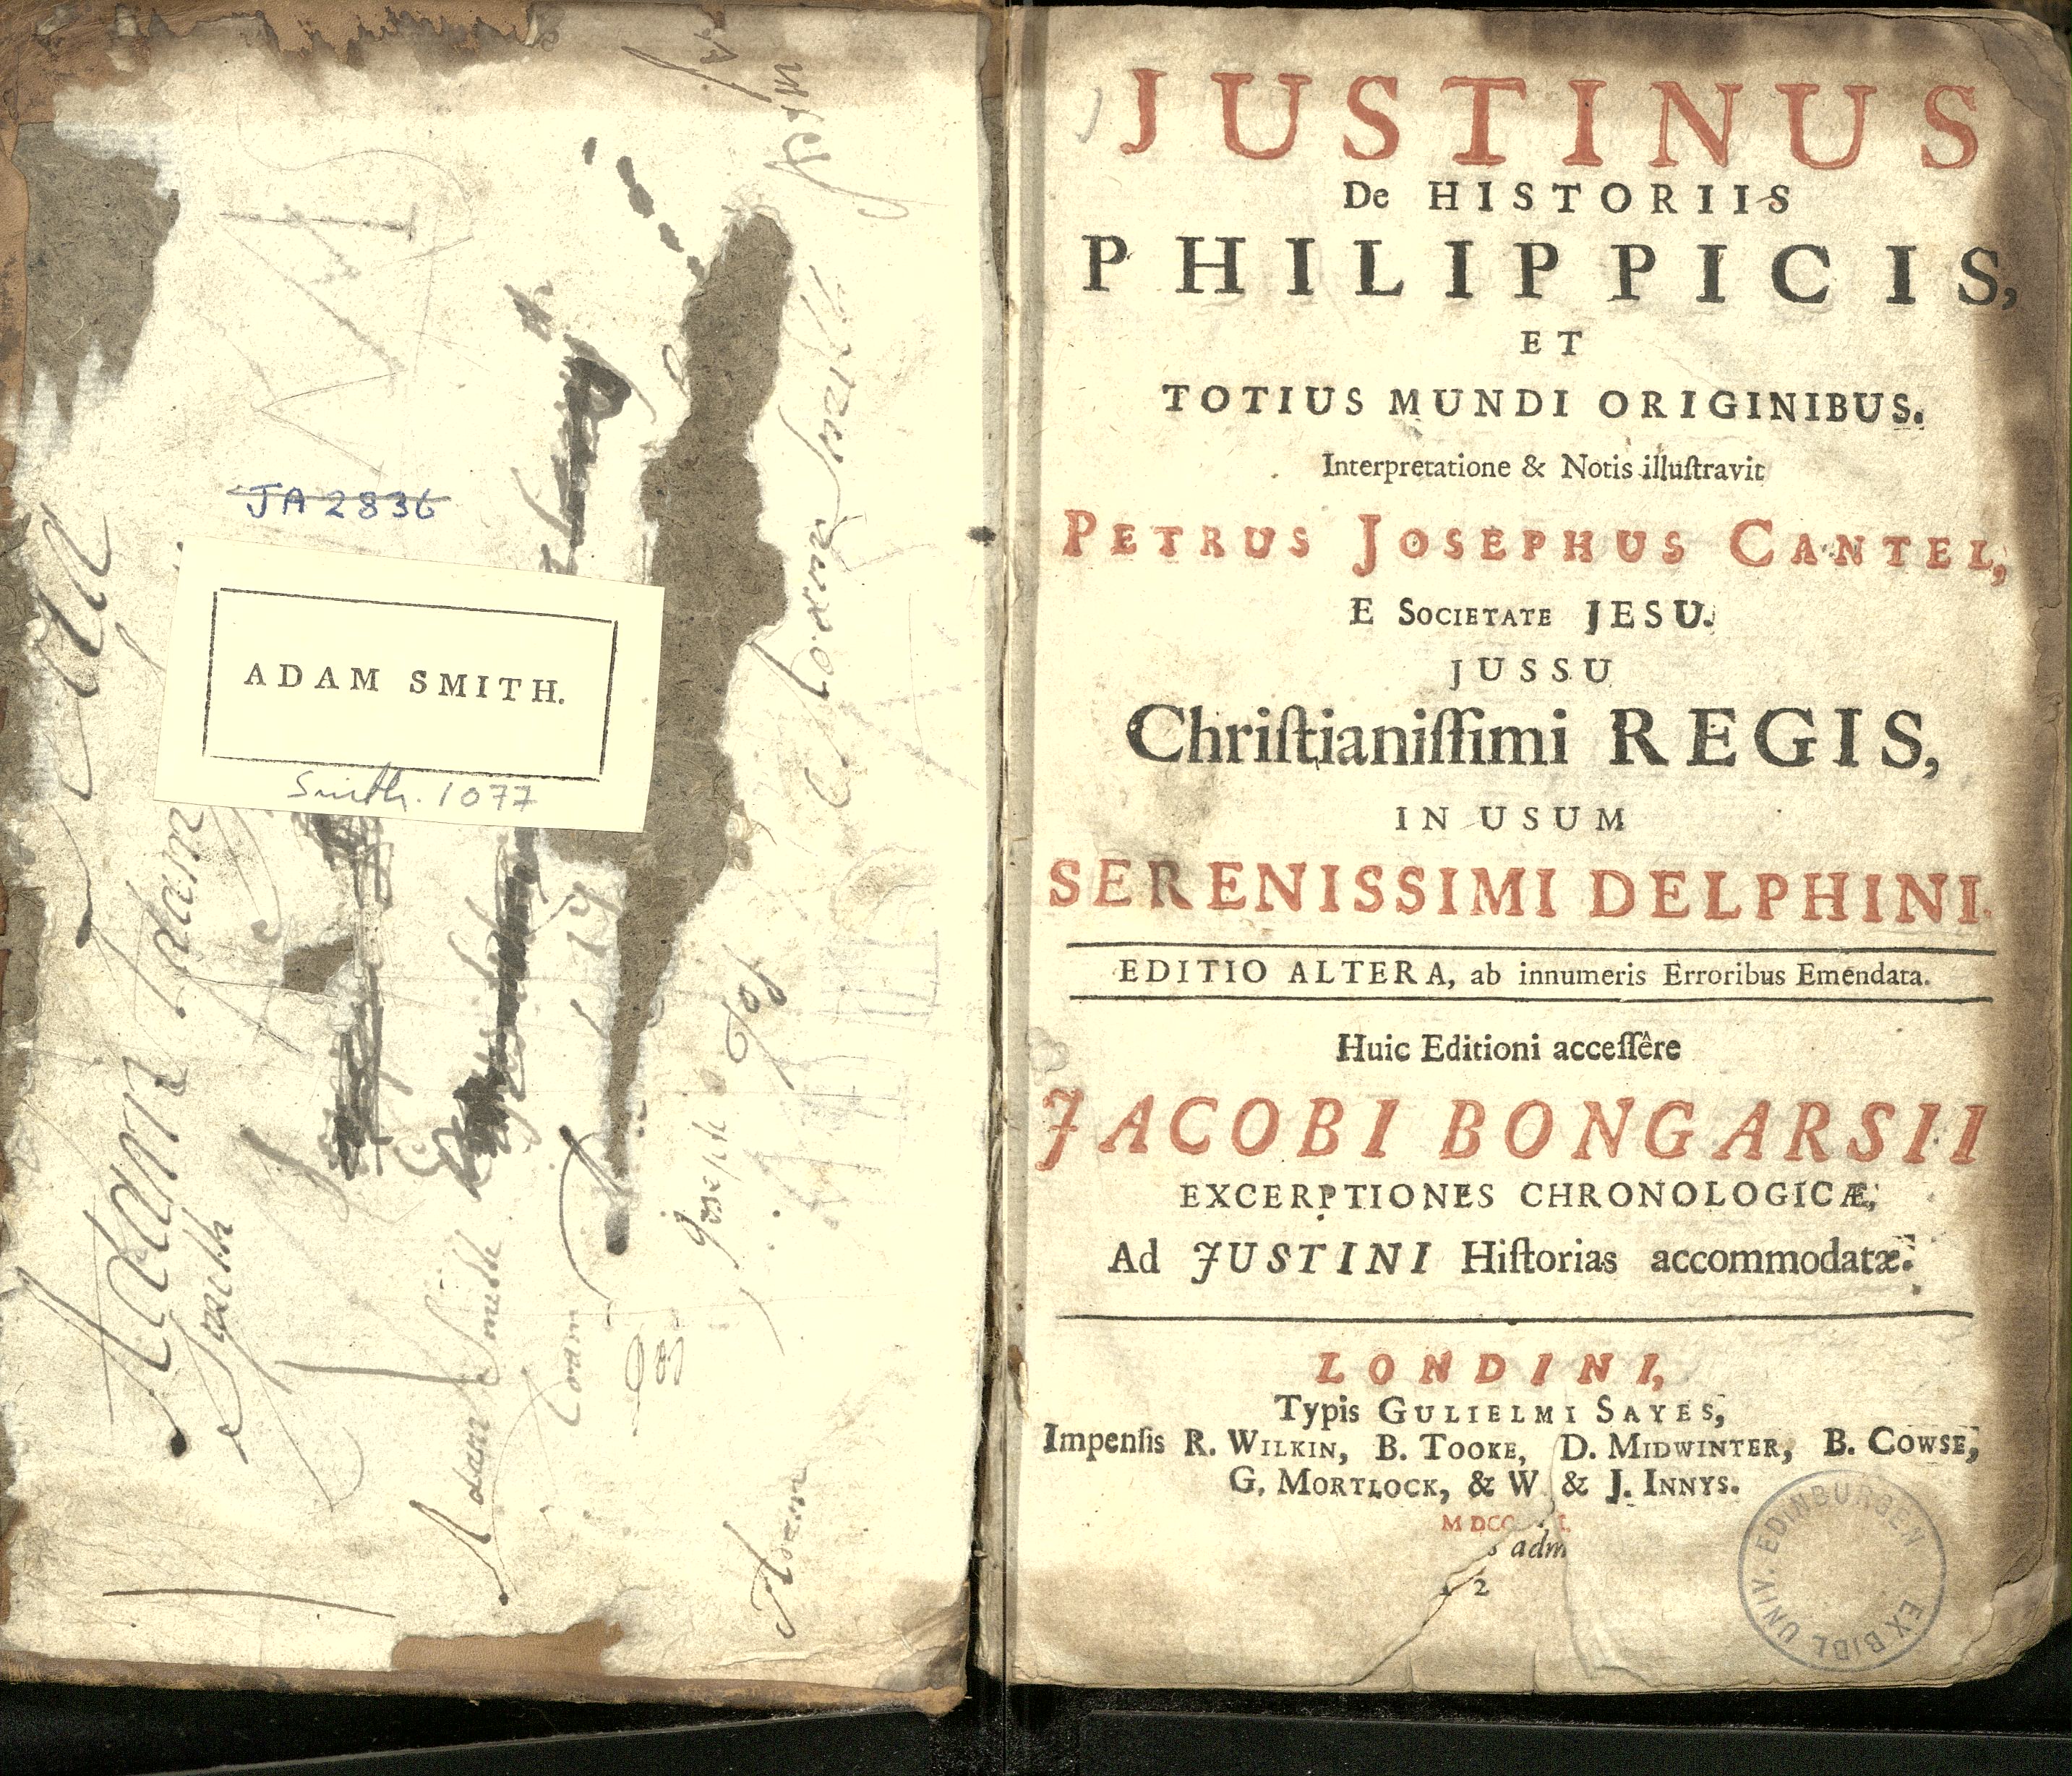 JA 2836
ADAM SMITH.
Smith. 1077
Adam
Smith
Adam
Adam Smith
Joseph
Job
JUSTINUS
De HISTORIIS
PHILIPPICIS,
ET
TOTIUS MUNDI ORIGINIBUS.
Interpretatione & Notis illuſtravit
PETRUS JOSEPHUS CANTEL,
E SOCIETATE JESU.
JUSSU
Chriſtianiſſimi REGIS,
IN USUM
SERENISSIMI DELPHINI.
EDITIO ALTERA, ab innumeris Erroribus Emendata.
Huic Editioni acceſſêre
JACOBI BONGARSII
EXCERPTIONES CHRONOLOGICÆ,
Ad JUSTINI Hiſtorias accommodatæ.
LONDINI,
Typis GULIELMI SAYES,
Impenſis R. WILKIN, B. TOOKE, D. MIDWINTER, B. COWSE,
G. MORTLOCK, & W. & J. INNYS.
adm
2
EX BIBL UNIV. EDINBURGEN